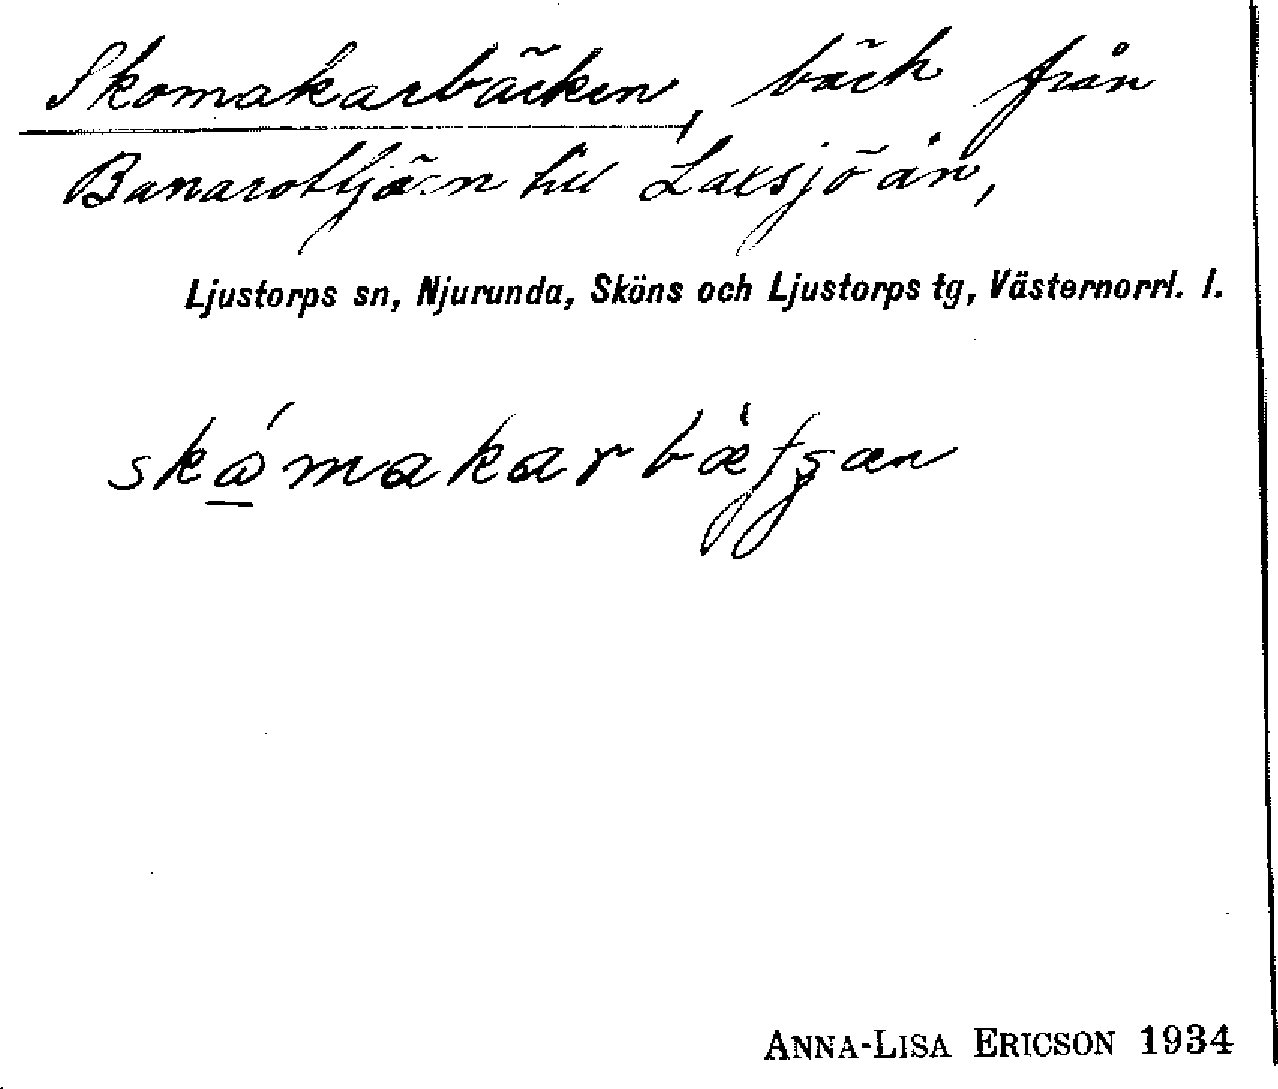 Skomakarbäcken, bäck från
Banarottjärn till Laxsjöån,
Ljustorps sn, Njurunda, Sköns och Ljustorps tg, Västernorrl. l.
ANNA-LISA ERICSON 1934